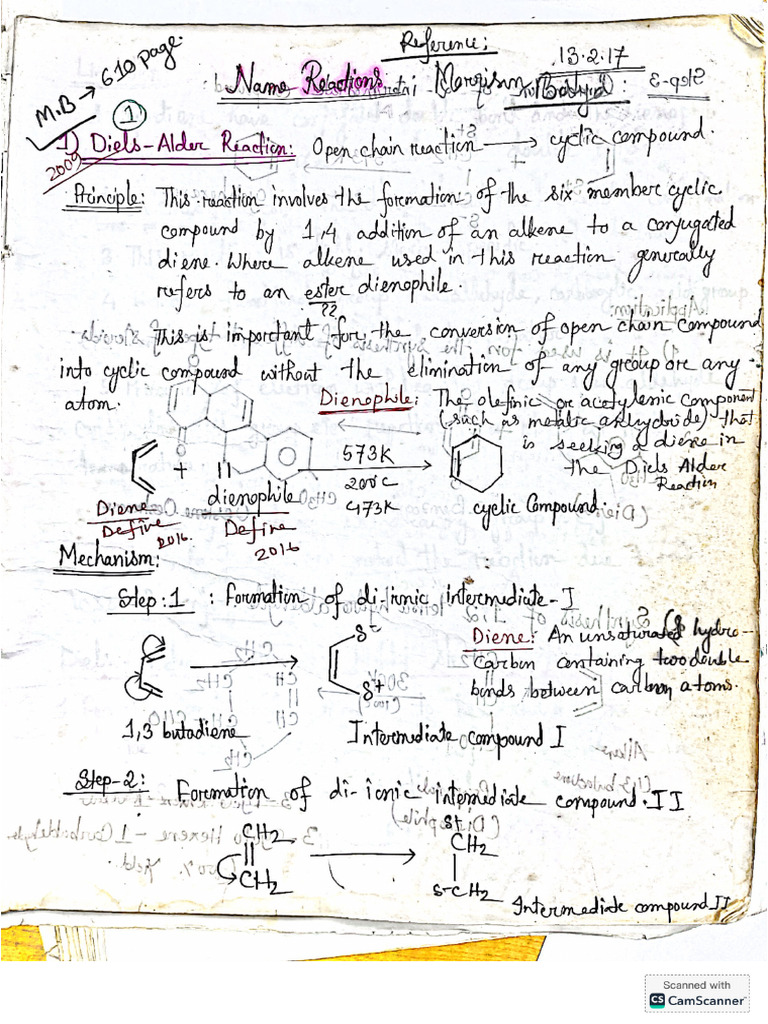 Reference:
13.2.17
M.B → 610 page.
Name Reactions
1
2009
1) Diels-Alder Reaction: Open chain reaction → cyclic compound.
Principle: This reaction involves the formation of the six member cyclic
compound by 1,4 addition of an alkene to a conjugated
diene. Where alkene used in this reaction generally
refers to an ester dienophile.
??
This is important for the conversion of open chain compound
into cyclic compound without the elimination of any group or any
atom.
Dienophile: The olefinic or acetylenic component
(such as maleic anhydride) that
is seeking a diene in
the Diels Alder
Reaction
+
573K
200°C
473K
Diene
Define
2016.
dienophile
Define
2016
cyclic compound.
Mechanism:
Step:1 : Formation of di-ionic intermediate-I
Diene: An unsaturated hydro-
carbon containing two double
bonds between carbon atoms.
δ-
δ+
1,3 butadiene
Intermediate compound I
Step-2: Formation of di-ionic intermediate compound.II
CH2
CH2
δ+
CH2
δ-CH2
Intermediate compound II
Scanned with
CS CamScanner